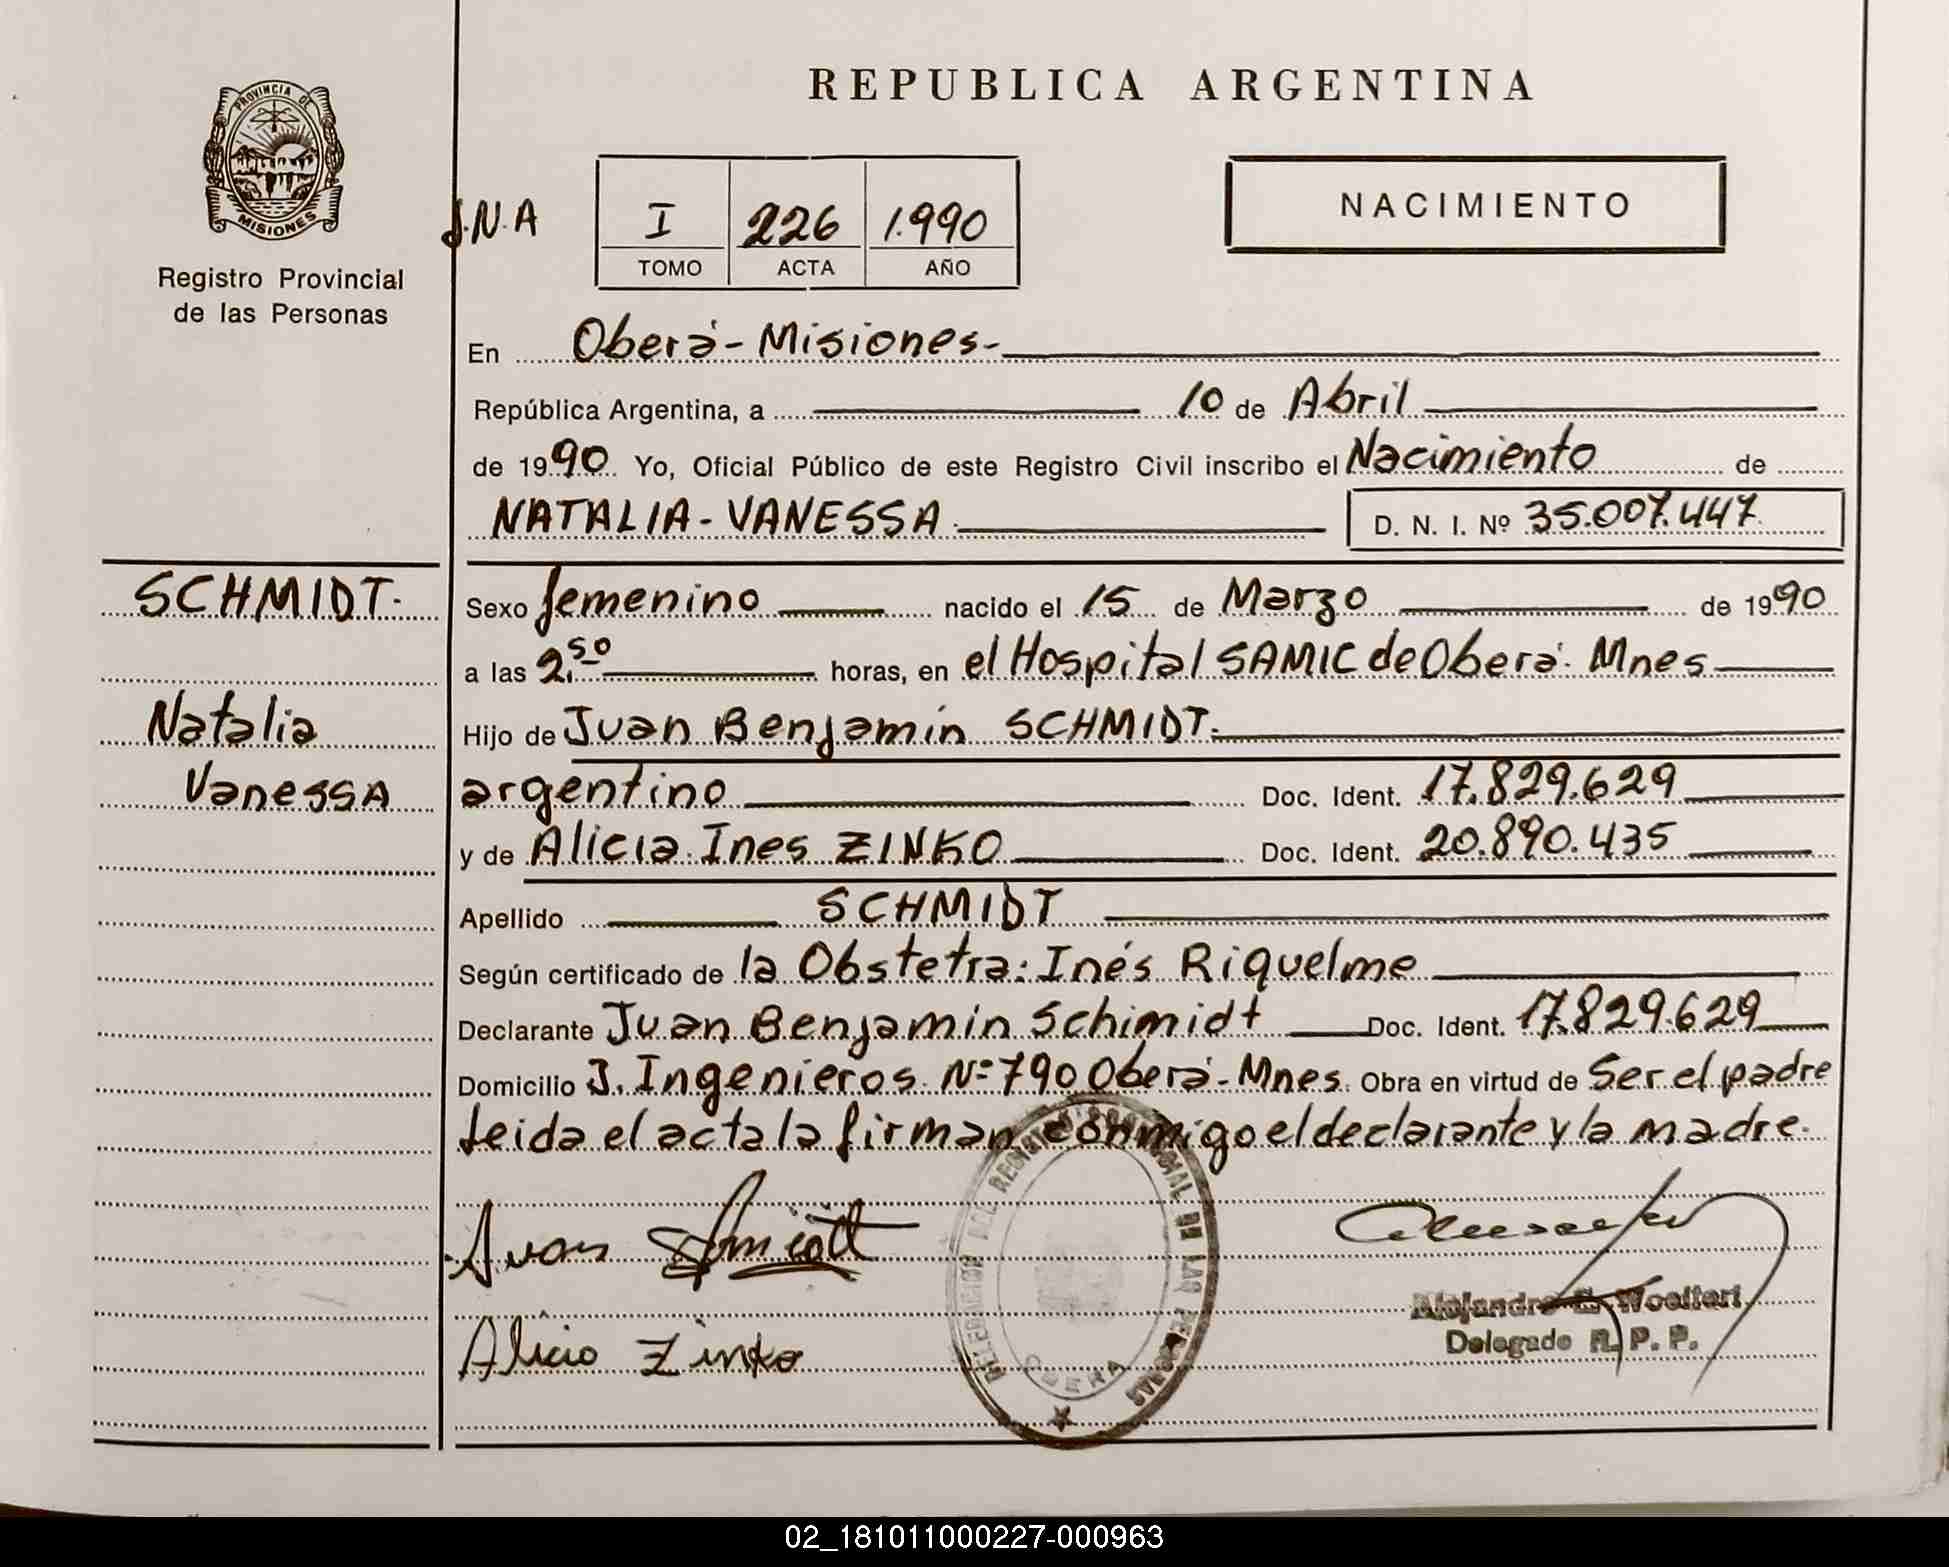 REPUBLICA ARGENTINA
PROVINCIA DE
MISIONES
Registro Provincial
de las Personas
J.N.A
I 226 1.990
TOMO ACTA AÑO
NACIMIENTO
En Oberá - Misiones -
República Argentina, a 10 de Abril
de 1990 Yo, Oficial Público de este Registro Civil inscribo el Nacimiento de
NATALIA - VANESSA. D. N. I. Nº 35.007.447
SCHMIDT.
Natalia
Vanessa
Sexo femenino nacido el 15 de Marzo de 1990
a las 2.50 horas, en el Hospital SAMIC de Oberá. Mnes
Hijo de Juan Benjamín SCHMIDT.
argentino Doc. Ident. 17.829.629
y de Alicia Ines ZINKO Doc. Ident. 20.890.435
Apellido SCHMIDT
Según certificado de la Obstetra: Inés Riquelme
Declarante Juan Benjamín Schimidt Doc. Ident. 17.829.629
Domicilio J. Ingenieros Nº 790 Oberá - Mnes. Obra en virtud de Ser el padre
Leida el acta la firman conmigo el declarante y la madre.
Juan
Alicia Zinko
DELEGACION DEL REGISTRO PROVINCIAL DE LAS PERSONAS
OBERA
Alejandro Woelfert
Delegado R. P. P.
02_181011000227-000963